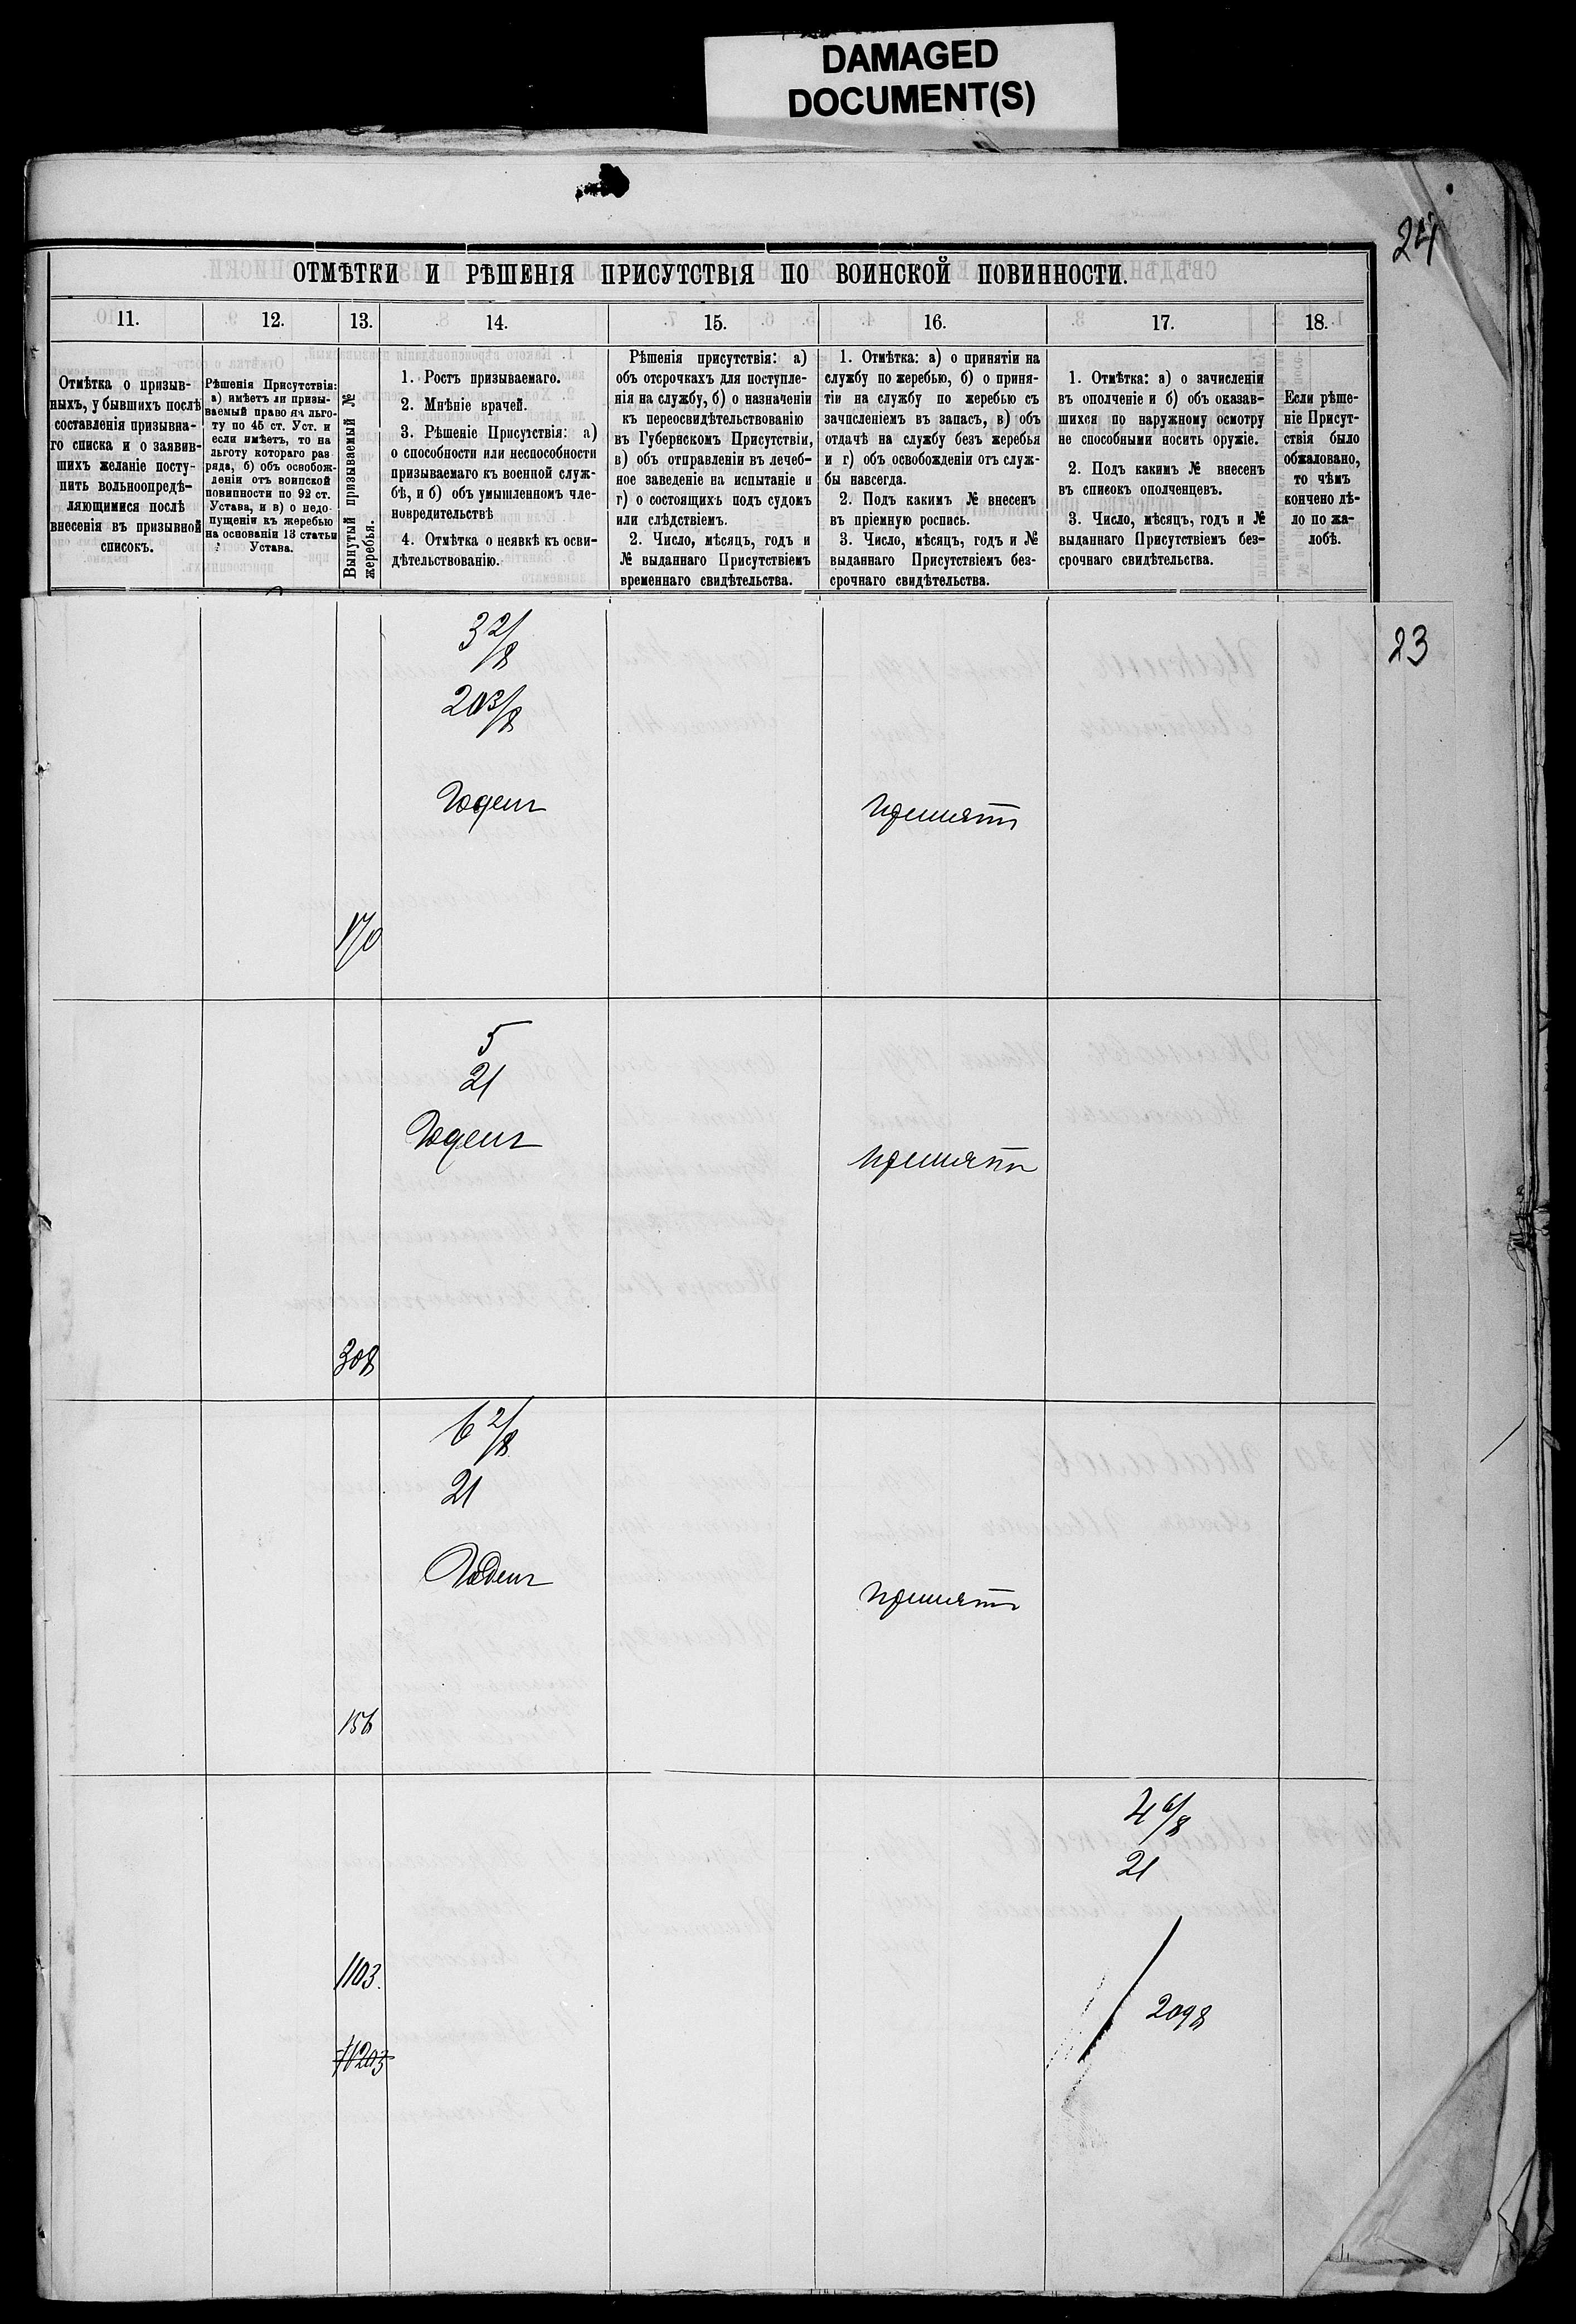 DAMAGED
DOCUMENT(S)
24
ОТМѢТКИ И РѢШЕНІЯ ПРИСУТСТВІЯ ПО ВОИНСКОЙ ПОВИННОСТИ.
11.
12.
13.
14.
15.
16.
17.
18.
Отмѣтка о призыв-
ныхъ, у бывшихъ послѣ
составленія призывна-
го списка и о заявив-
шихъ желаніе посту-
пить вольноопредѣ-
ляющимися послѣ
внесенія въ призывной
списокъ.
Рѣшенія Присутствія:
а) имѣетъ ли призы-
ваемый право на льго-
ту по 45 ст. Уст. и
если имѣетъ, то на
льготу котораго раз
ряда, б) объ освобож-
деніи отъ воинской
повинности по 92 ст.
Устава, и в) о недо-
пущеніи къ жеребью
на основаніи 13 статьи
Устава.
Вынутый призываемый №
жеребья.
1. Ростъ призываемаго.
2. Мнѣніе врачей.
3. Рѣшеніе Присутствія: а)
о способности или неспособности
призываемаго къ военной служ-
бѣ, и б) объ умышленномъ чле-
новредительствѣ
4. Отмѣтка о неявкѣ къ осви-
дѣтельствованію.
Рѣшенія присутствія: а)
объ отсрочкахъ для поступле-
нія на службу, б) о назначеніи
къ переосвидѣтельствованію
въ Губернскомъ Присутствіи,
в) объ отправленіи въ лечеб-
ное заведеніе на испытаніе и
г) о состоящихъ подъ судомъ
или слѣдствіемъ.
2. Число, мѣсяцъ, годъ и
№ выданнаго Присутствіемъ
временнаго свидѣтельства.
1. Отмѣтка: а) о принятіи на
службу по жеребью, б) о приня-
тіи на службу по жеребью съ
зачисленіемъ въ запасъ, в) объ
отдачѣ на службу безъ жеребья
и г) объ освобожденіи отъ служ-
бы навсегда.
2. Подъ какимъ № внесенъ
въ пріемную роспись.
3. Число, мѣсяцъ, годъ и №
выданнаго Присутствіемъ без-
срочнаго свидѣтельства.
1. Отмѣтка: а) о зачисленіи
въ ополченіе и б) объ оказав-
шихся по наружному осмотру
не способными носить оружіе.
2. Подъ какимъ № внесенъ
въ списокъ ополченцевъ.
3. Число, мѣсяцъ, годъ и №
выданнаго Присутствіемъ без-
срочнаго свидѣтельства.
Если рѣше-
ніе Присут-
ствія было
обжаловано,
то чѣмъ
кончено дѣ-
ло по жа-
лобѣ.
23
3 2/8
20 3/8
Годенъ
принятъ
170
5
21
Годенъ
принятъ
308
6 2/8
21
Годенъ
принятъ
156
4 6/8
21
1103.
2098
11203